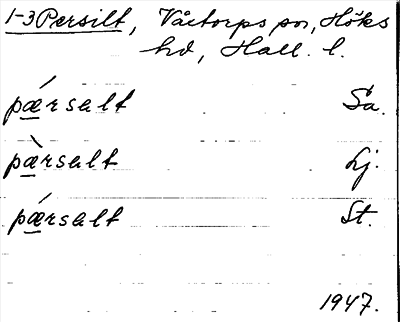 1-3 Persilt, Våxtorps sn, Höks
hd, Hall. l.
pǽrsalt Så.
pæ̀rsalt Lj.
pǽrsalt St.
1947.